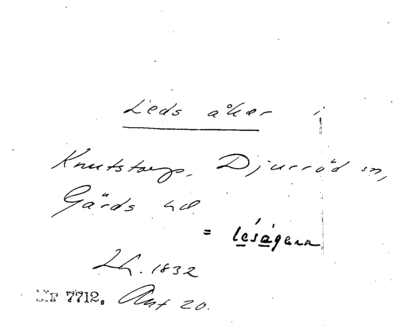 Leds åker i
Knutstorp, Djurröd sn,
Gärds hd.
= lésågern
Lh. 1832
Nr 7712. Ant 20.